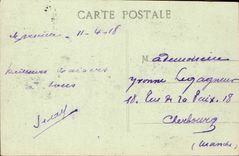 CARTE POSTALE
11-4-18
Mademoiselle
Meilleurs baisers
à tous
Yvonne Legagneur
18. Rue de la Paix. 18
Cherbourg
(Manche)